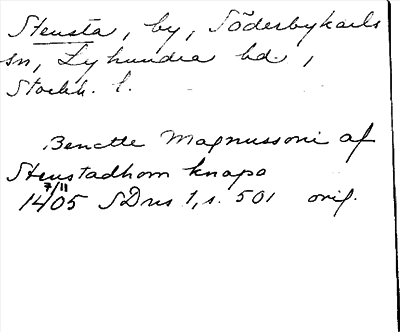 Stensta, by, Söderbykarls
sn, Lyhundra hd.,
Stockh. l.
Benctte Magnussoni af
Stenstadhom knapa
7/11
1405 SDns 1, s. 501 orig.